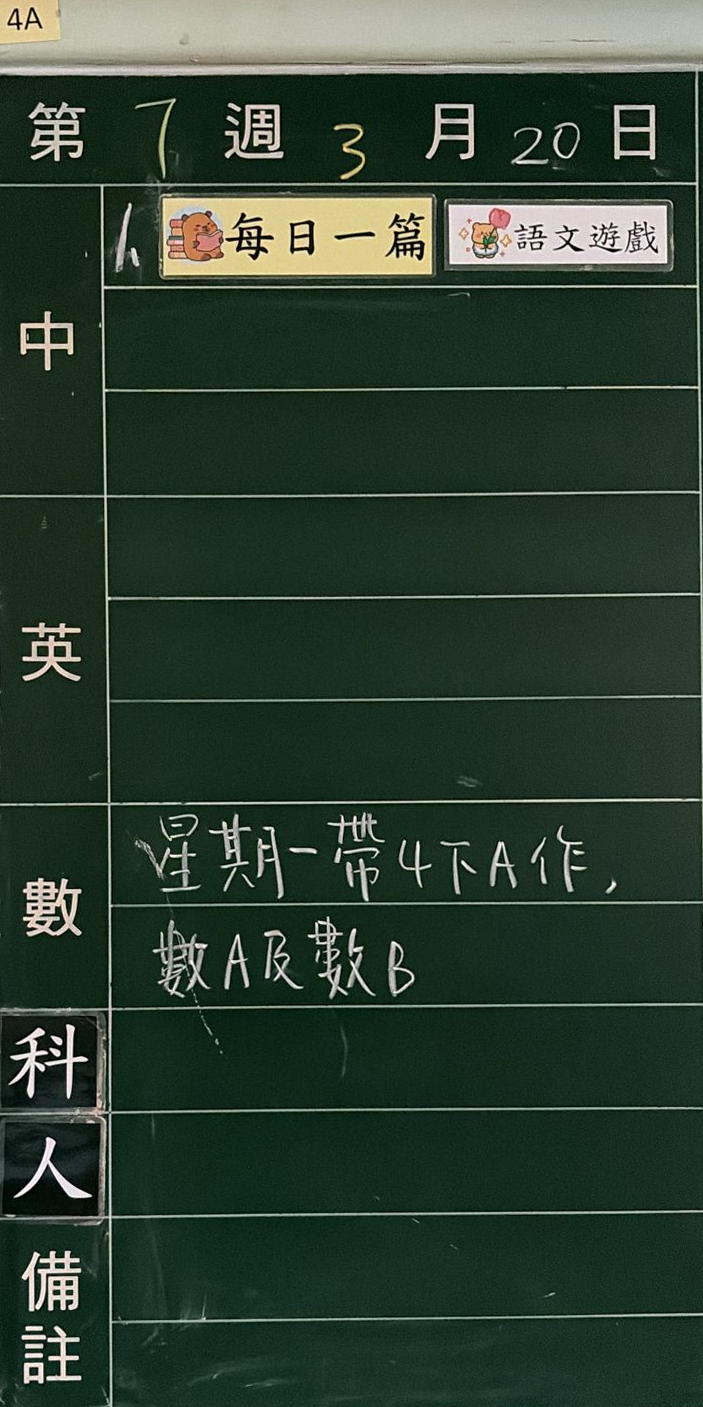 4A
第 7 週 3 月 20 日
中
1. 每日一篇 語文遊戲
英
數
星期一帶4下A作,
數A及數B
科
人
備註